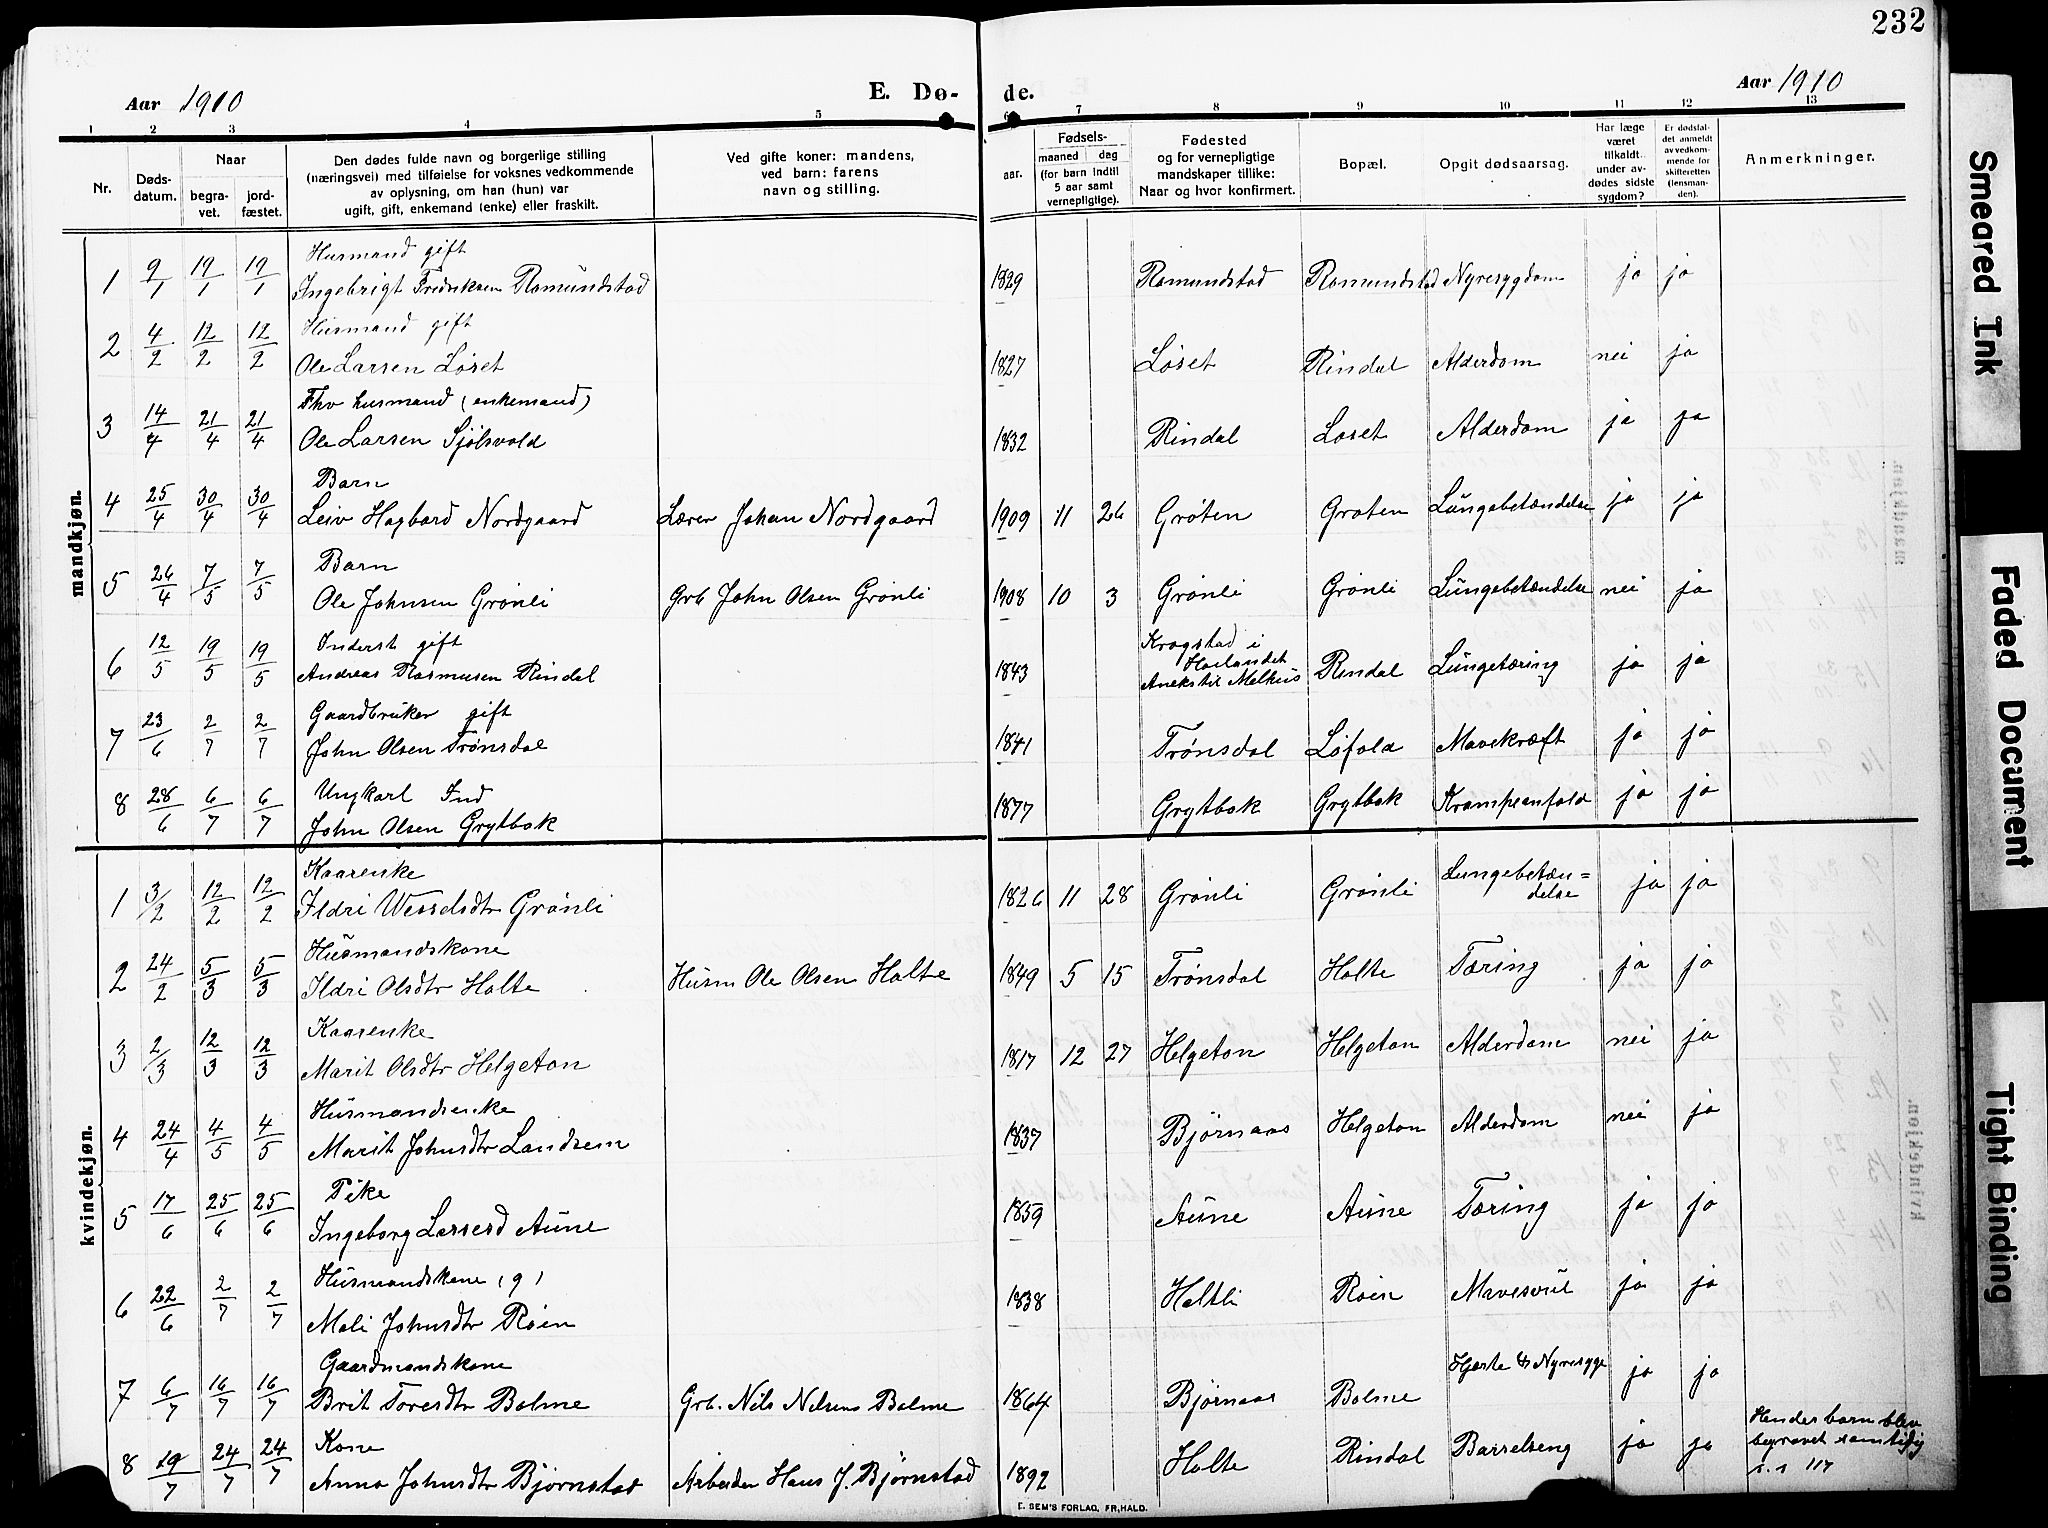 232
Aar 1910 E. Dø- de. Aar 1910
1 2 3 4 5 6 7 8 9 10 11 12 13
Nr.
Døds-
datum.
Naar
begra-
vet.
jord-
fæstet.
Den dødes fulde navn og borgerlige stilling
(næringsvei) med tilføielse for voksnes vedkommende
av oplysning, om han (hun) var
ugift, gift, enkemand (enke) eller fraskilt.
Ved gifte koner: mandens,
ved barn: farens
navn og stilling.
Fødsels-
aar.
maaned dag
(for barn indtil
5 aar samt
vernepligtige).
Fødested
og for vernepligtige
mandskaper tillike:
Naar og hvor konfirmert.
Bopæl.
Opgit dødsaarsag.
Har læge
været
tilkaldt
under av-
dødes sidste
sygdom?
Er dødsfal-
det anmeldt
av vedkom-
mende for
skifteretten
(lensman-
den).
Anmerkninger.
mandkjøn.
Husmand gift
1 9/1 19/1 19/1 Ingebrigt Fredriksen Romundstad 1829 Romundstad Romundstad Nyresygdom ja ja
Husmand gift
2 4/2 12/2 12/2 Ole Larsen Løset 1827 Løset Rindal Alderdom nei ja
Fhv husmand (enkemand)
3 14/4 21/4 21/4 Ole Larsen Sjølsvold 1832 Rindal Løset Alderdom ja ja
Barn
4 25/4 30/4 30/4 Leiv Hagbard Nordgaard Lærer Johan Nordgaard 1909 11 26 Grøten Grøten Lungebetændelse ja ja
Barn
5 26/4 7/5 7/5 Ole Johnsen Grønli Grb John Olsen Grønli 1908 10 3 Grønli Grønli Lungebetændelse nei ja
Inderst gift
6 12/5 19/5 19/5 Andreas Rasmusen Rindal 1843 Krogstad i
Høilandet
Anekstil Melhus Rindal Lungetæring ja ja
Gaardbruker gift
7 23/6 2/7 2/7 John Olsen Trønsdal 1841 Trønsdal Løfald Mavekræft ja ja
Ungkarl Ind
8 28/6 6/7 6/7 John Olsen Grytbak 1877 Grytbak Grytbak Krampeanfald ja ja
kvindekjøn.
Kaarenke
1 3/2 12/2 12/2 Ildri Wesselsdtr Grønli 1826 11 28 Grønli Grønli Lungebetæn=
delse ja ja
Husmandskone
2 24/2 5/3 5/3 Ildri Olsdtr Halte Husm Ole Olsen Halte 1849 5 15 Trønsdal Holte Tæring ja ja
Kaarenke
3 2/3 12/3 12/3 Marit Olsdtr Helgeton 1817 12 27 Helgeton Helgeton Alderdom nei ja
Husmandsenke
4 24/4 4/5 4/5 Marit Johnsdtr Landsem 1837 Bjørnaas Helgeton Alderdom nei ja
Pike
5 17/6 25/6 25/6 Ingeborg Larsesd Aune 1859 Aune Aune Tæring ja ja
Husmandskone (g)
6 22/6 2/7 2/7 Mali Johnsdtr Røen 1838 Holtli Røen Mavesvul ja ja
Gaardmandskone
7 6/7 16/7 16/7 Brit Toresdtr Bolme Grb. Nils Nilsens Bolme 1864 Bjørnaas Bolme Hjerte & Nyresyge ja ja
Kone
8 19/7 24/7 24/7 Anna Johnsdtr Bjørnstad Arbeider Hans J. Bjørnstad 1892 Holte Rindal Barselseng ja ja Hendes barn blev
begravet samtidig
s. 117
E. SEM'S FORLAG, FR.HALD.
Smeared Ink
Faded Document
Tight Binding